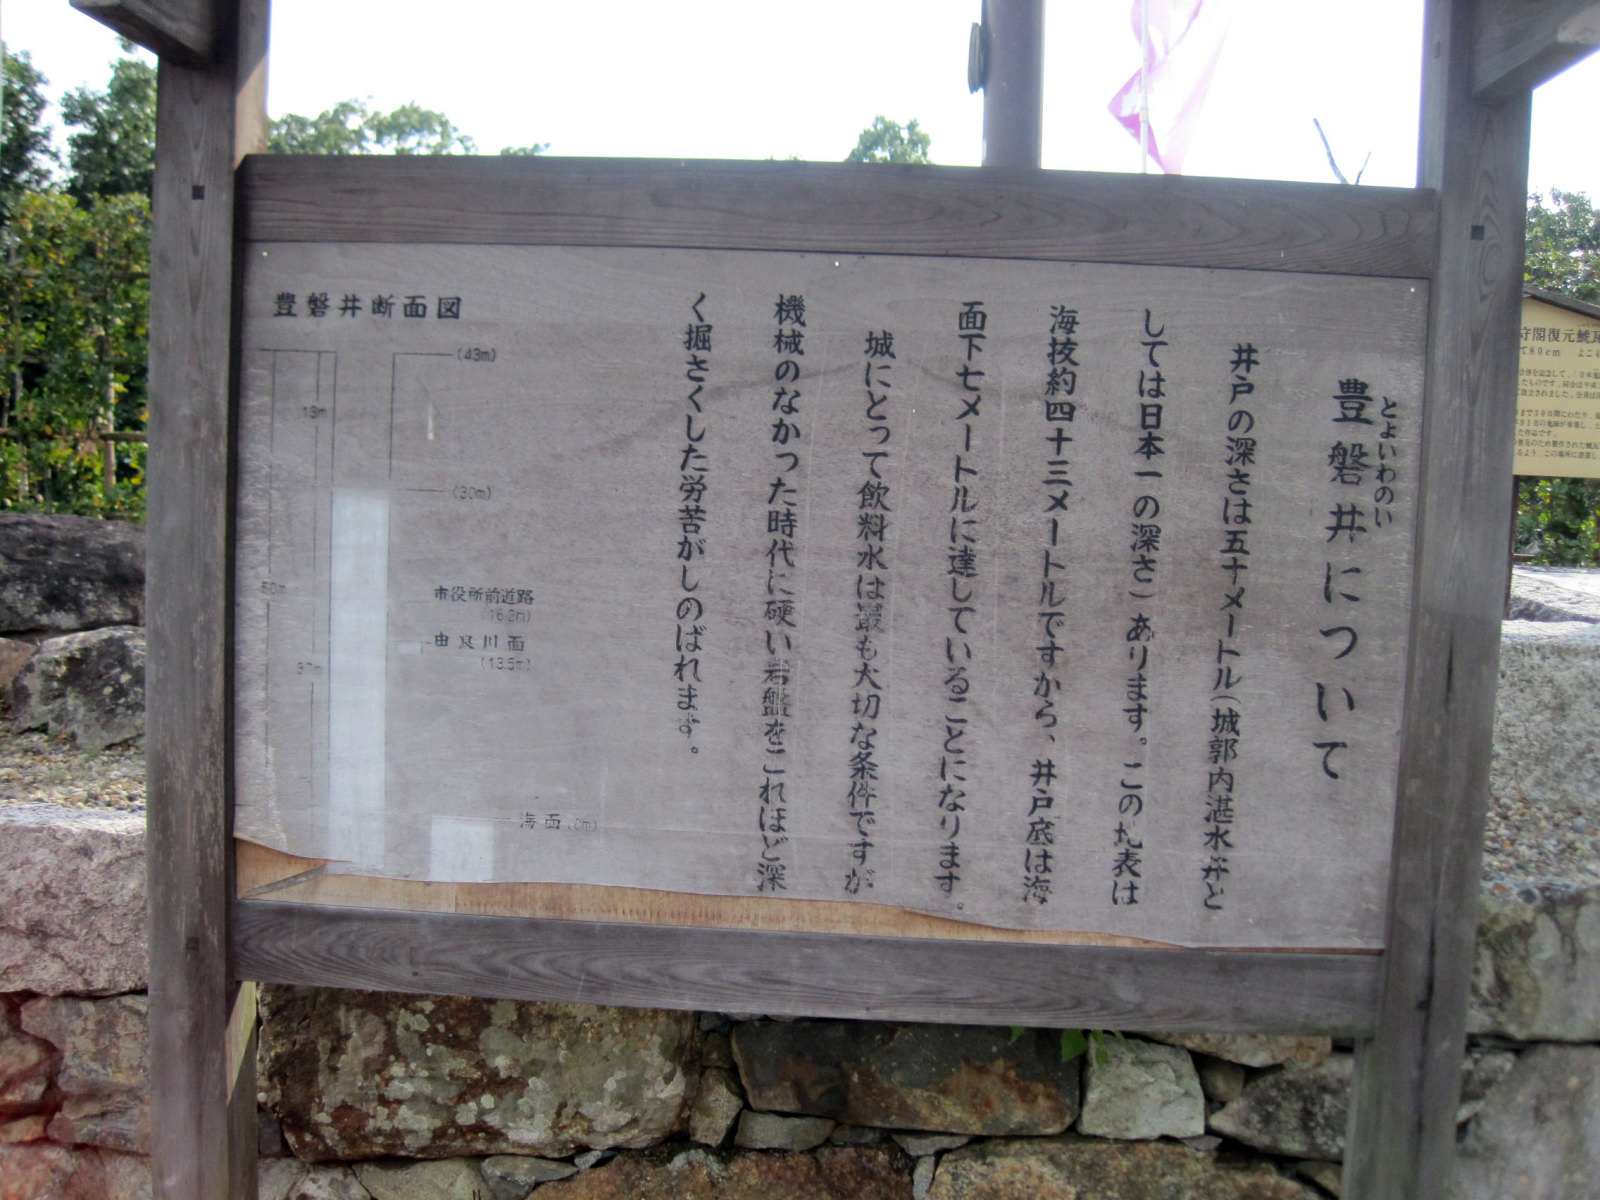 豊磐井について
とよいわのい
井戸の深さは五十メートル(城郭内湛水井と
しては日本一の深さ)あります。この地表は
海抜約四十三メートルですから、井戸底は海
面下七メートルに達していることになります。
城にとって飲料水は最も大切な条件ですが
機械のなかった時代に硬い岩盤をこれほど深
く掘さくした労苦がしのばれます。
豊磐井断面図
(43m)
13m
(30m)
50m
37m
市役所前道路
(16.2m)
由良川面
(13.5m)
海面(0m)
守閣復元鯱瓦
て80cm よこ4